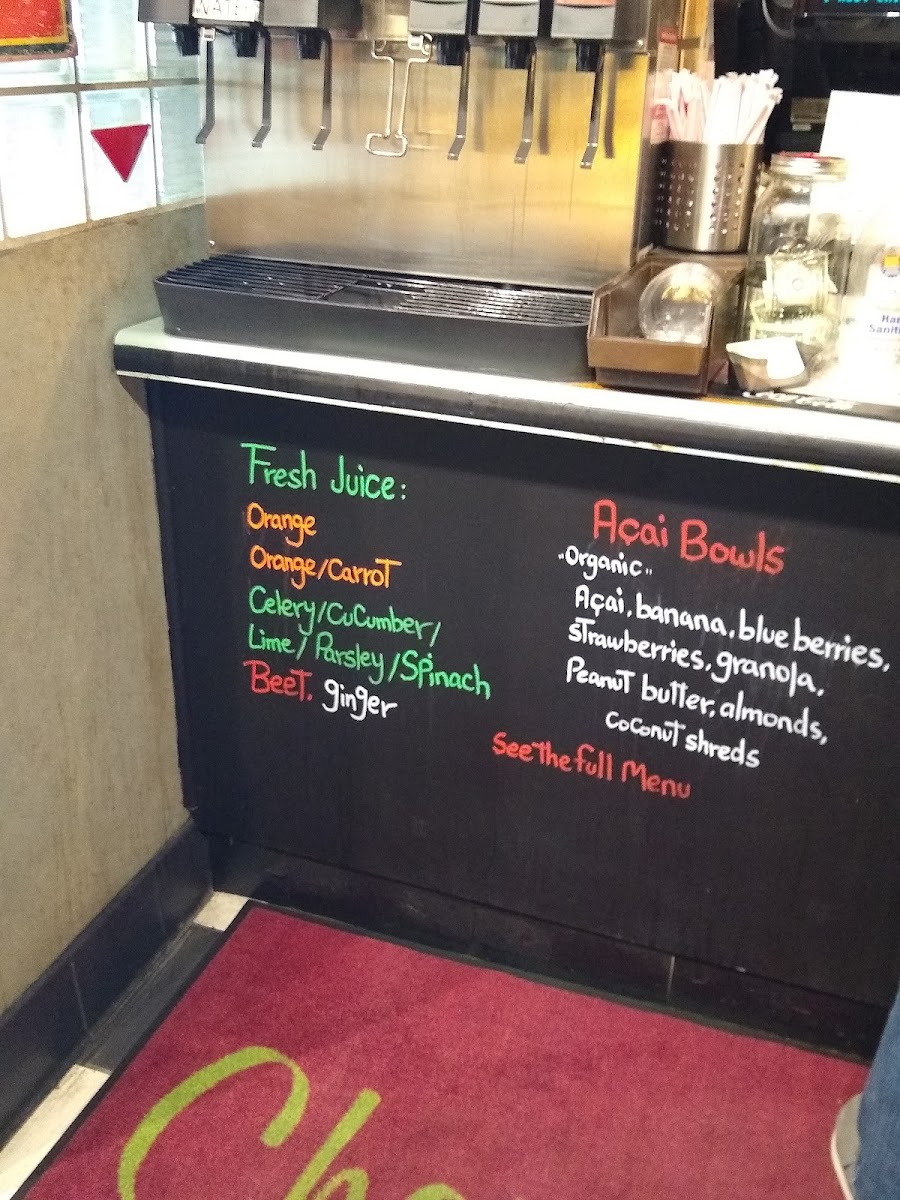 WATER
Fresh Juice:
Orange
Orange/Carrot
Celery/Cucumber/
Lime/Parsley/Spinach
Beet. ginger
Açai Bowls
"Organic"
Açai, banana, blueberries,
strawberries, granola,
Peanut butter, almonds,
coconut shreds
See the full Menu